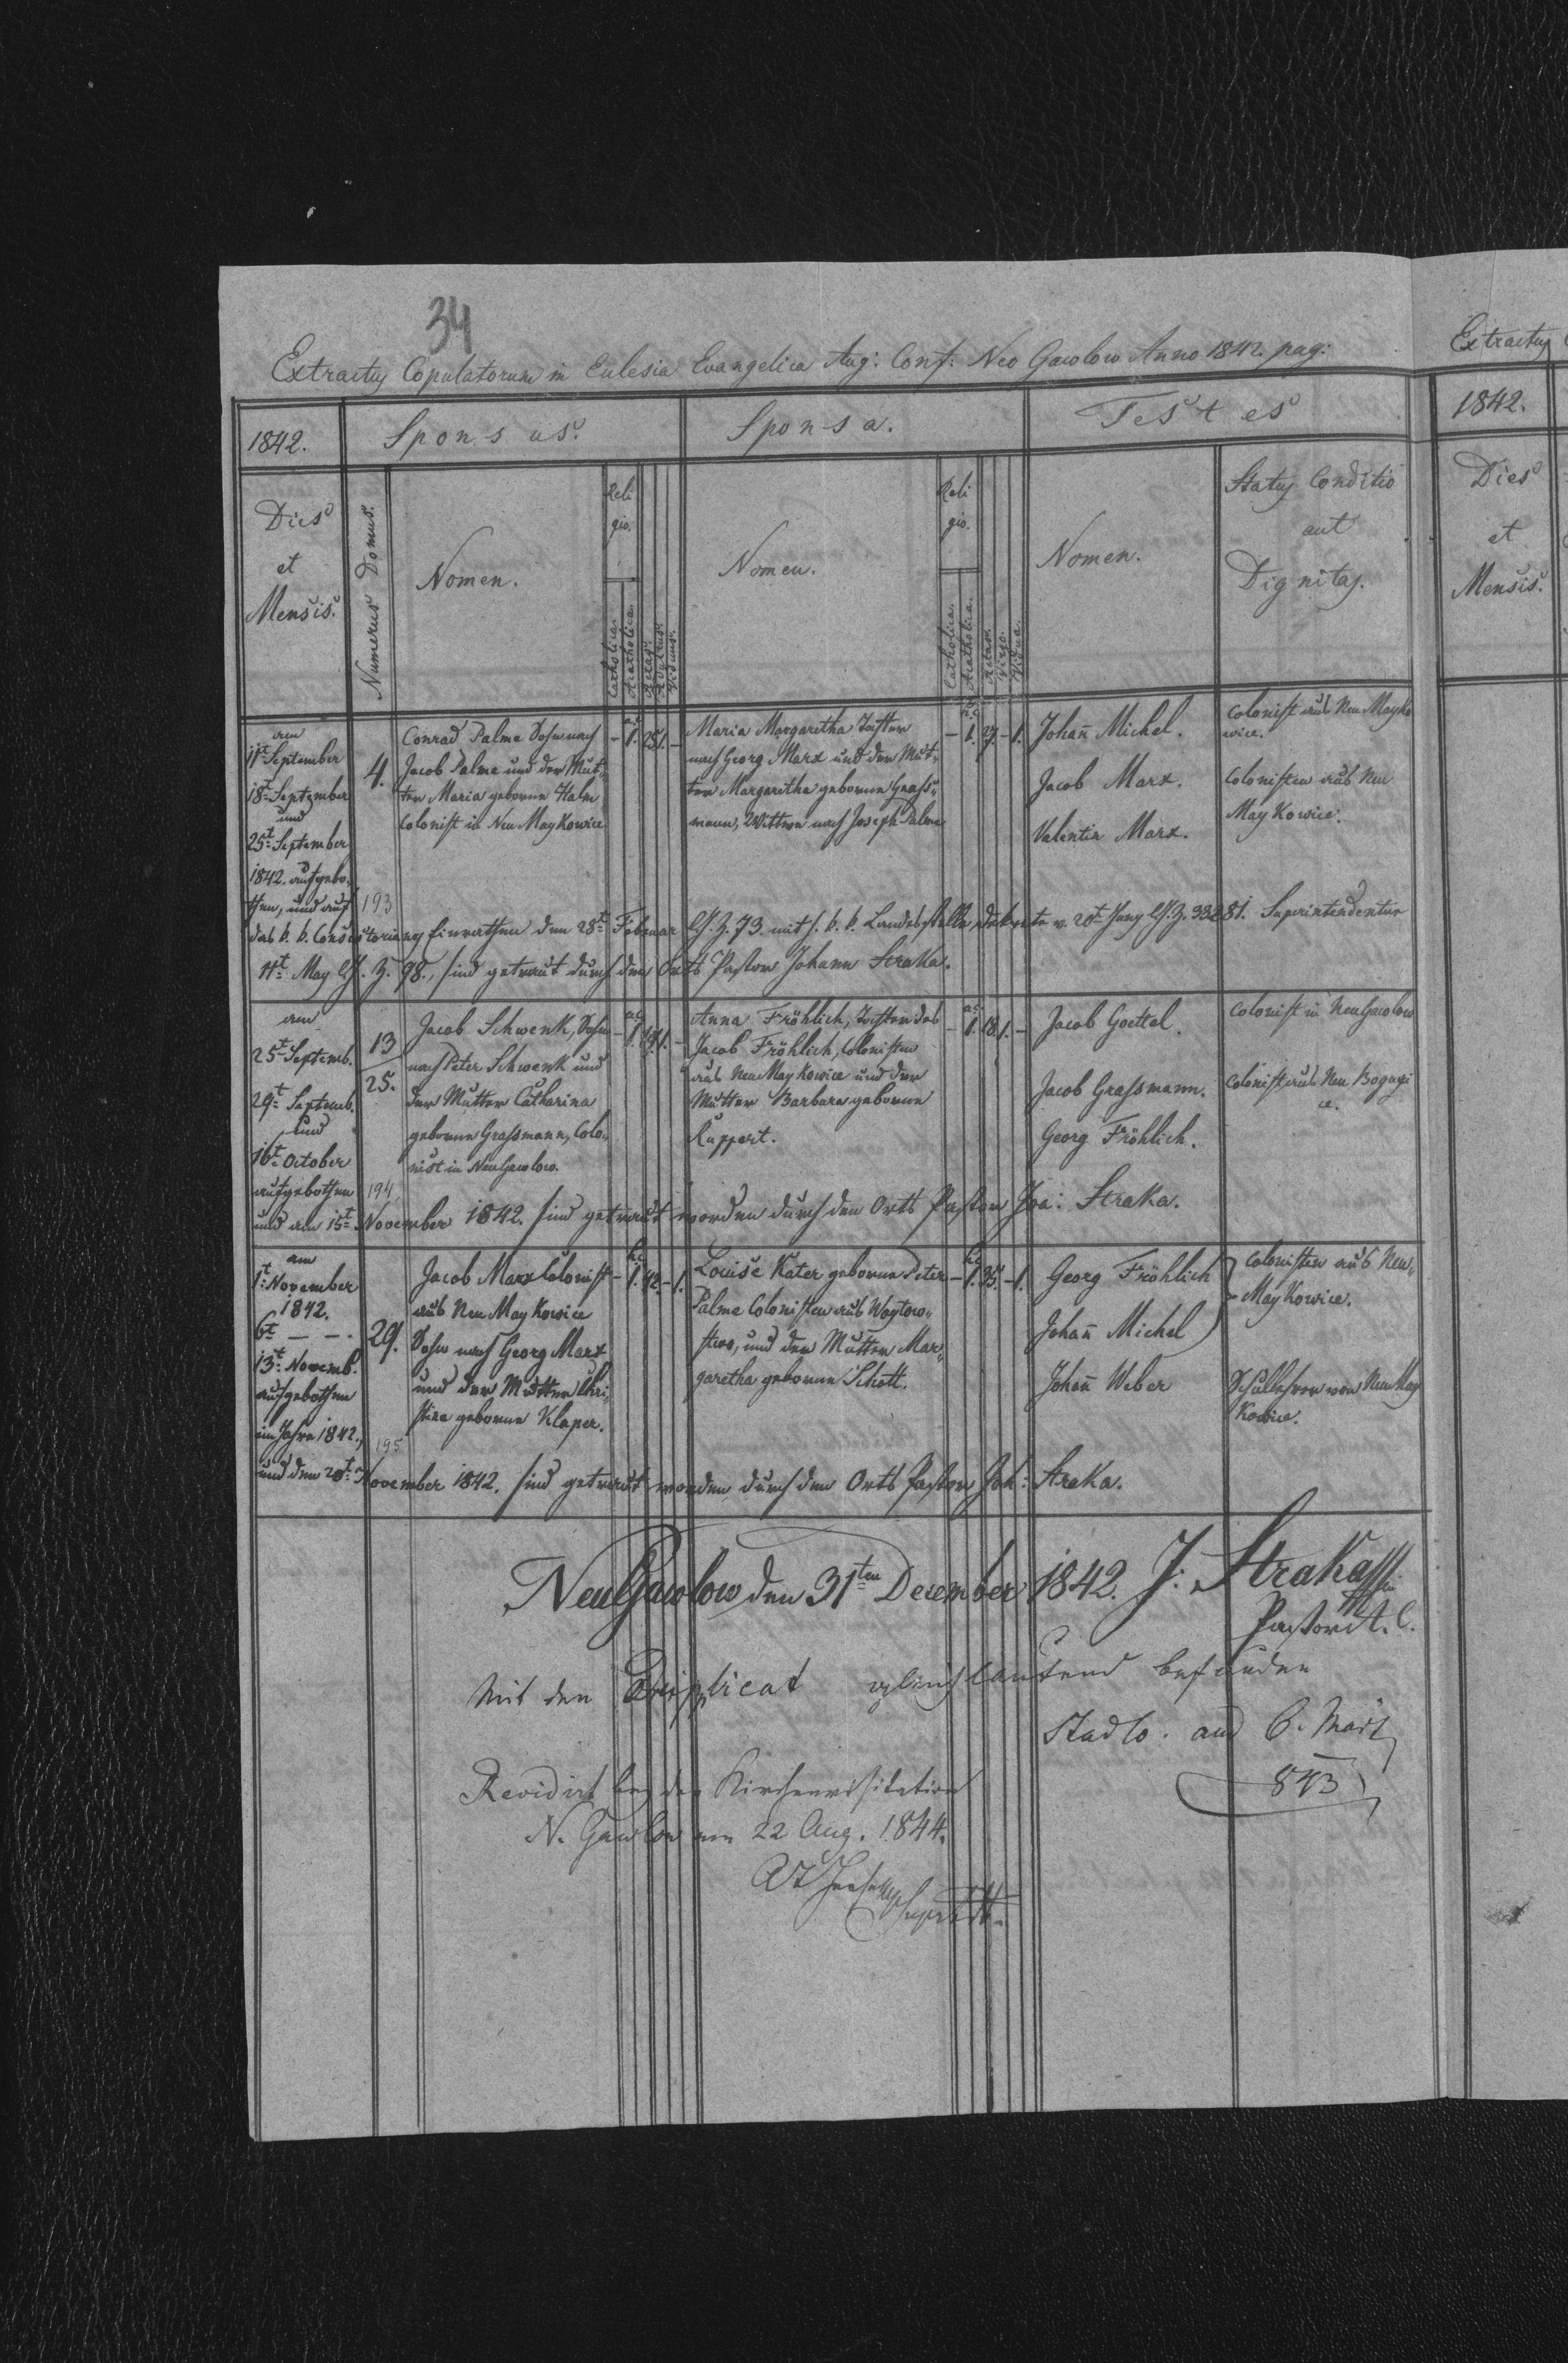 34
Extractus Copulatorum in Eulesia Evangelica Aug: Conf: Neo Gawlow Anno 1842. pag:
Extractus
1842.
Sponsus.
Sponsa.
Testes
1842.
Dies
et
Mensis.
Numerus Domus.
Nomen.
Reli
gio.
Catholica.
Acatholica.
Aetas.
Viduus.
Nomen.
Reli
gio.
Catholica.
Acatholica.
Aetas.
Virgo.
Vidua.
Nomen.
Status Conditio
aut
Dignitas.
Dies
et
Mensis.
am
11t September
18t September
und
25t September
1842. aufgebo-
then, und auf
4.
193
Conrad Palme Sohn nach
Jacob Palme und der Mut-
ter Maria geborne Halm
Colonist in Neu Maykowice
- 1. 25 1. -
Maria Margaretha Tochter
nach Georg Marx und der Mut-
ter Margaretha geborne Grass-
mann, Wittwe nach Joseph Palme
- 1. 27 - 1.
Johan̄ Michel.
Jacob Marx.
Valentin Marx.
Colonist aus Neu Mayko
wice.
Colonisten aus Neu
Maykowice.
das k. k. Consistoriums Einrathen den 28t Februar Z. 73 mit k. k. Landesstelle Dekrete v. 20t Juny Z. 33281. Superintendentur
11t May Z. 98., sind getraut durch den Orts Pastor Johann Straka.
am
25t Septemb.
29t Septemb.
und
16t October
aufgebothen
13
25.
194
Jacob Schwenk, Sohn
nach Peter Schwenk und
der Mutter Catharina
geborne Grassmann, Colo-
nist in Neu Gawlow.
Anna Fröhlich, Tochter des
Jacob Fröhlich, Colonisten
aus Neu Maykowice und der
Mutter Barbara geborne
Ruppert.
- 1. 18. 1. -
Jacob Goettel.
Jacob Grassmann.
Georg Fröhlich.
Colonist in Neu Gawlow
Colonist aus Neu Bogugi
ce.
und am 15t November 1842. sind getraut worden durch den Orts Pastor Joa: Straka.
am
1t November
1842.
6t — —.
13t Novemb.
aufgebothen
im Jahre 1842.,
29.
195
Jacob Marx Colonist
aus Neu Maykowice
Sohn nach Georg Marx
und der Mutter Chri-
stina geborne Klaper.
- 1. 42. - 1.
Louise Kater geborne Peter
Palme Colonisten aus Woytow-
stwo, und der Mutter Mar-
garetha geborne Schott.
- 1. 35. - 1.
Georg Fröhlich
Johan̄ Michel
Johan̄ Weber
Colonisten aus Neu-
Maykowice.
Schullehrer von Neu May
kowice.
und den 20t November 1842. sind getraut worden durch den Orts Pastor Joh: Straka.
Neu Gawlow den 31ten December 1842. J. Straka
Pastor A. C.
Mit dem Duplicat gleichlautend befunden
Stadlo. am 6. März
843
Revidirt bey der Kirchenvisitation
N. Gawlow am 22 Aug. 1844.